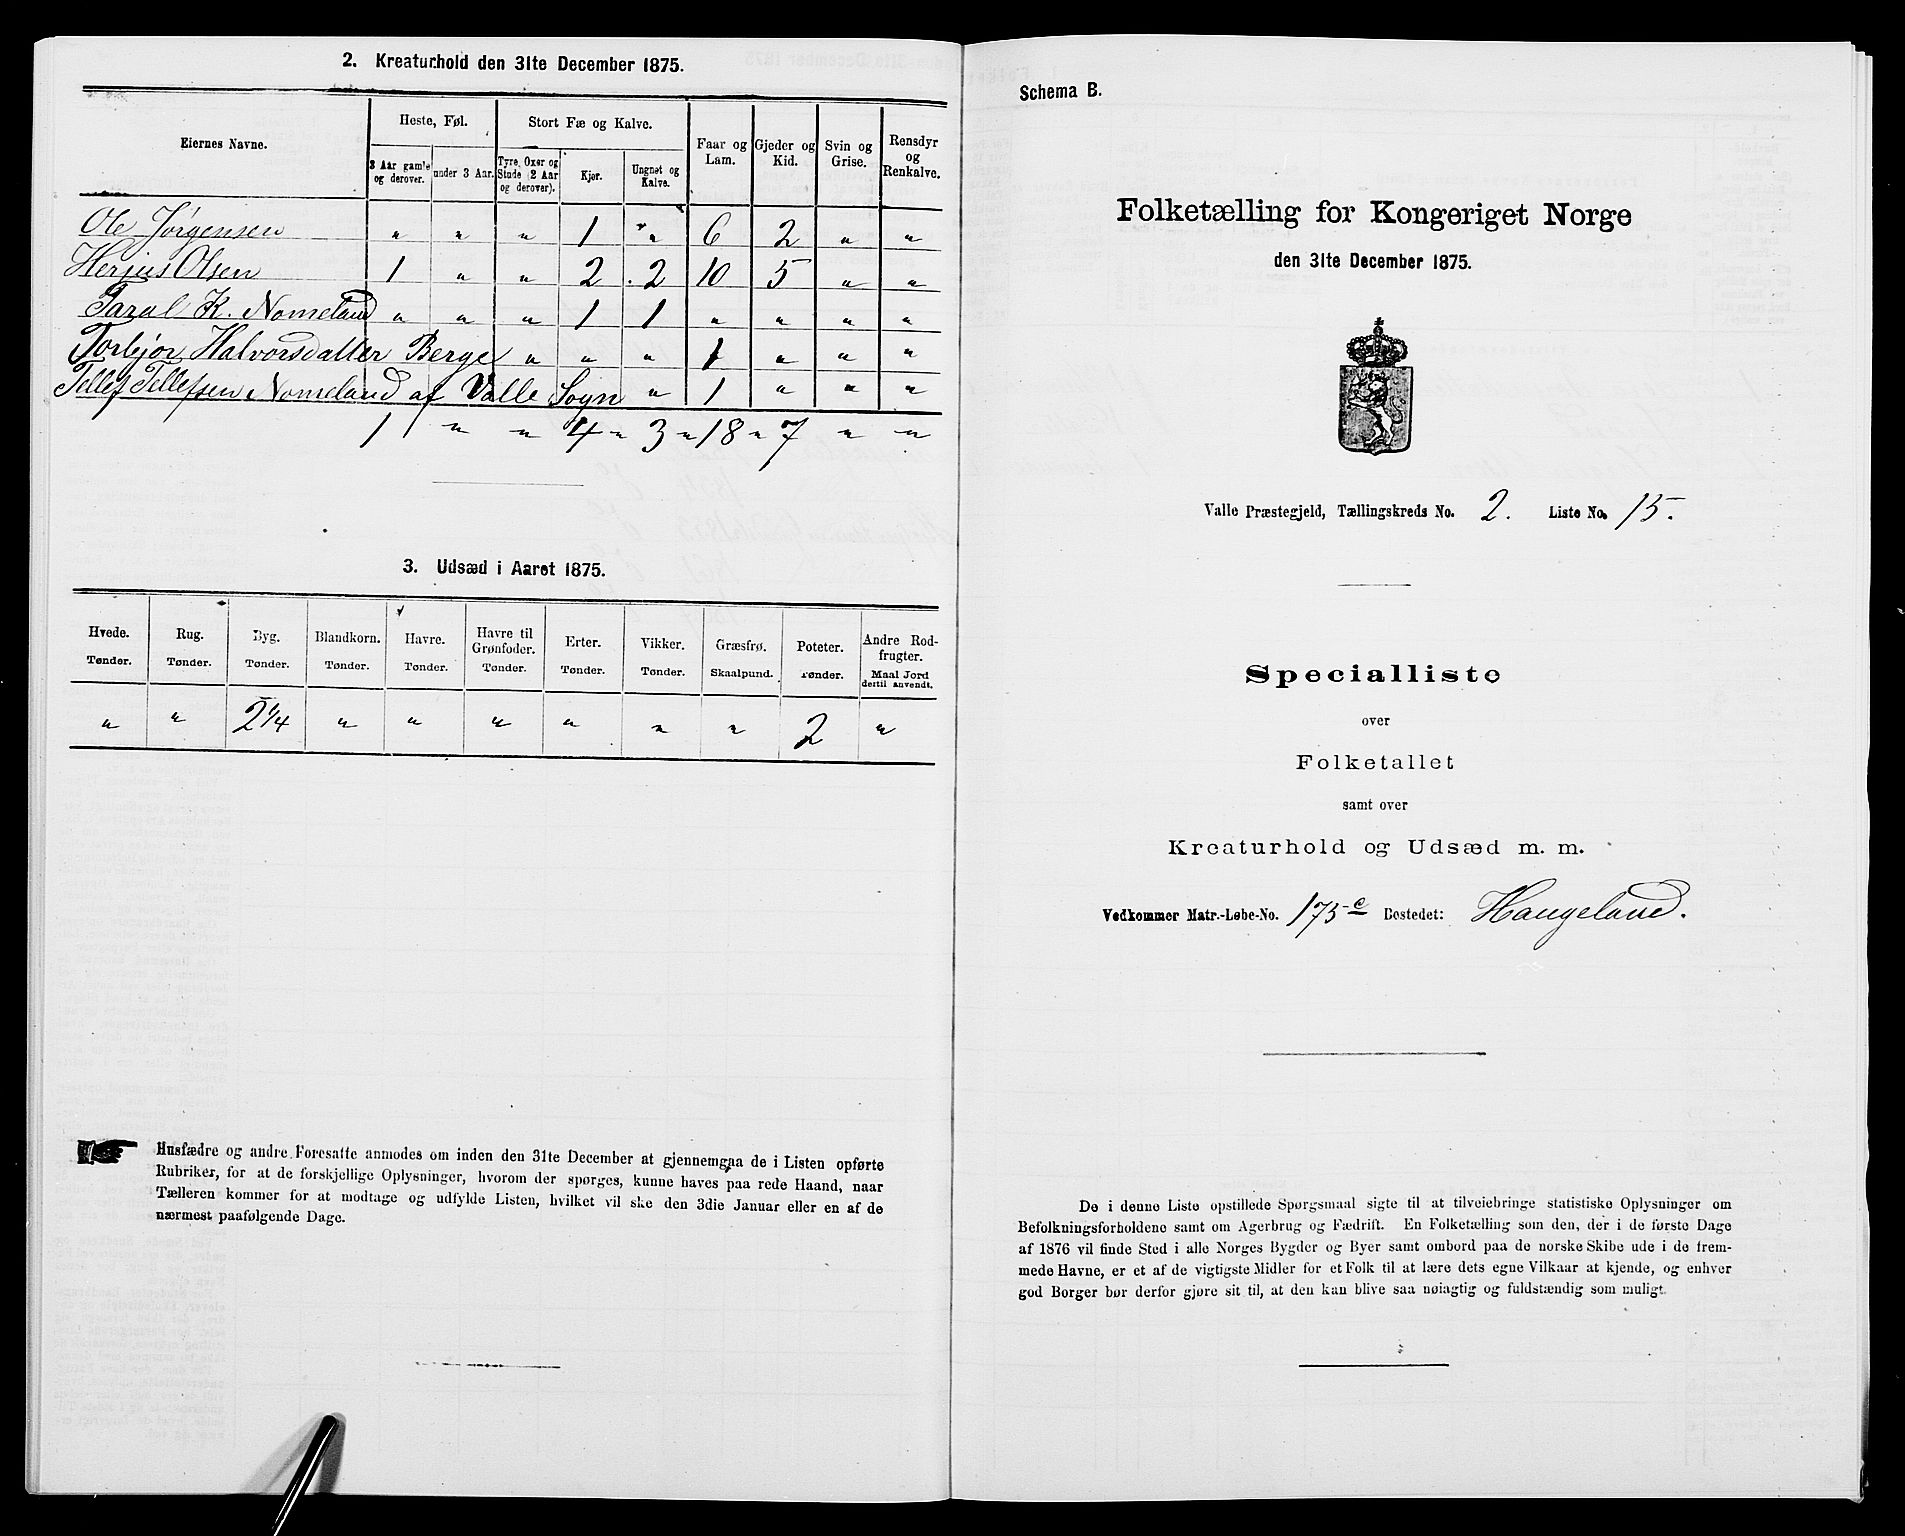 2. Kreaturhold den 31te December 1875.
Eiernes Navne.
Heste, Føl.
Stort Fæ og Kalve.
Faar og Lam.
Gjeder og Kid.
Svin og Grise.
Rensdyr og Renkalve.
3 Aar gamle og derover.
under 3 Aar.
Tyre, Oxer og Stude (2 Aar og derover).
Kjør.
Ungnøt og Kalve.
Ole Jørgensen " " " 1 " 6 2 " "
Herjus Olsen 1 " " 2 2 10 5 " "
Taral K. Nomeland " " " 1 1 " " " "
Torbjør Halvorsdatter Berge " " " 1 " " "
Tellef Tellefsen Nomeland af Valle Sogn " 1 " " "
1 " " 4 " 3 " 18 " 7 " "
3. Udsæd i Aaret 1875.
Hvede. Tønder.
Rug. Tønder.
Byg. Tønder.
Blandkorn. Tønder.
Havre. Tønder.
Havre til Grønfoder. Tønder.
Erter. Tønder.
Vikker. Tønder.
Græsfrø. Skaalpund.
Poteter. Tønder.
Andre Rodfrugter. Maal Jord dertil anvendt.
" " 2 1/4 " " " " " " 2 "
Husfædre og andre Foresatte anmodes om inden den 31te December at gjennemgaa de i Listen opførte
Rubriker, for at de forskjellige Oplysninger, hvorom der spørges, kunne haves paa rede Haand, naar
Tælleren kommer for at modtage og udfylde Listen, hvilket vil ske den 3die Januar eller en af de
nærmest paafølgende Dage.
Schema B.
Folketælling for Kongeriget Norge
den 31te December 1875.
Valle Præstegjeld, Tællingskreds No. 2. Liste No. 15.
Specialliste
over
Folketallet
samt over
Kreaturhold og Udsæd m. m.
Vedkommer Matr.-Løbe-No. 175c Bostedet: Haugeland.
De i denne Liste opstillede Spørgsmaal sigte til at tilveiebringe statistiske Oplysninger om
Befolkningsforholdene samt om Agerbrug og Fædrift. En Folketælling som den, der i de første Dage
af 1876 vil finde Sted i alle Norges Bygder og Byer samt ombord paa de norske Skibe ude i de frem-
mede Havne, er et af de vigtigste Midler for et Folk til at lære dets egne Vilkaar at kjende, og enhver
god Borger bør derfor gjøre sit til, at den kan blive saa nøiagtig og fuldstændig som muligt.